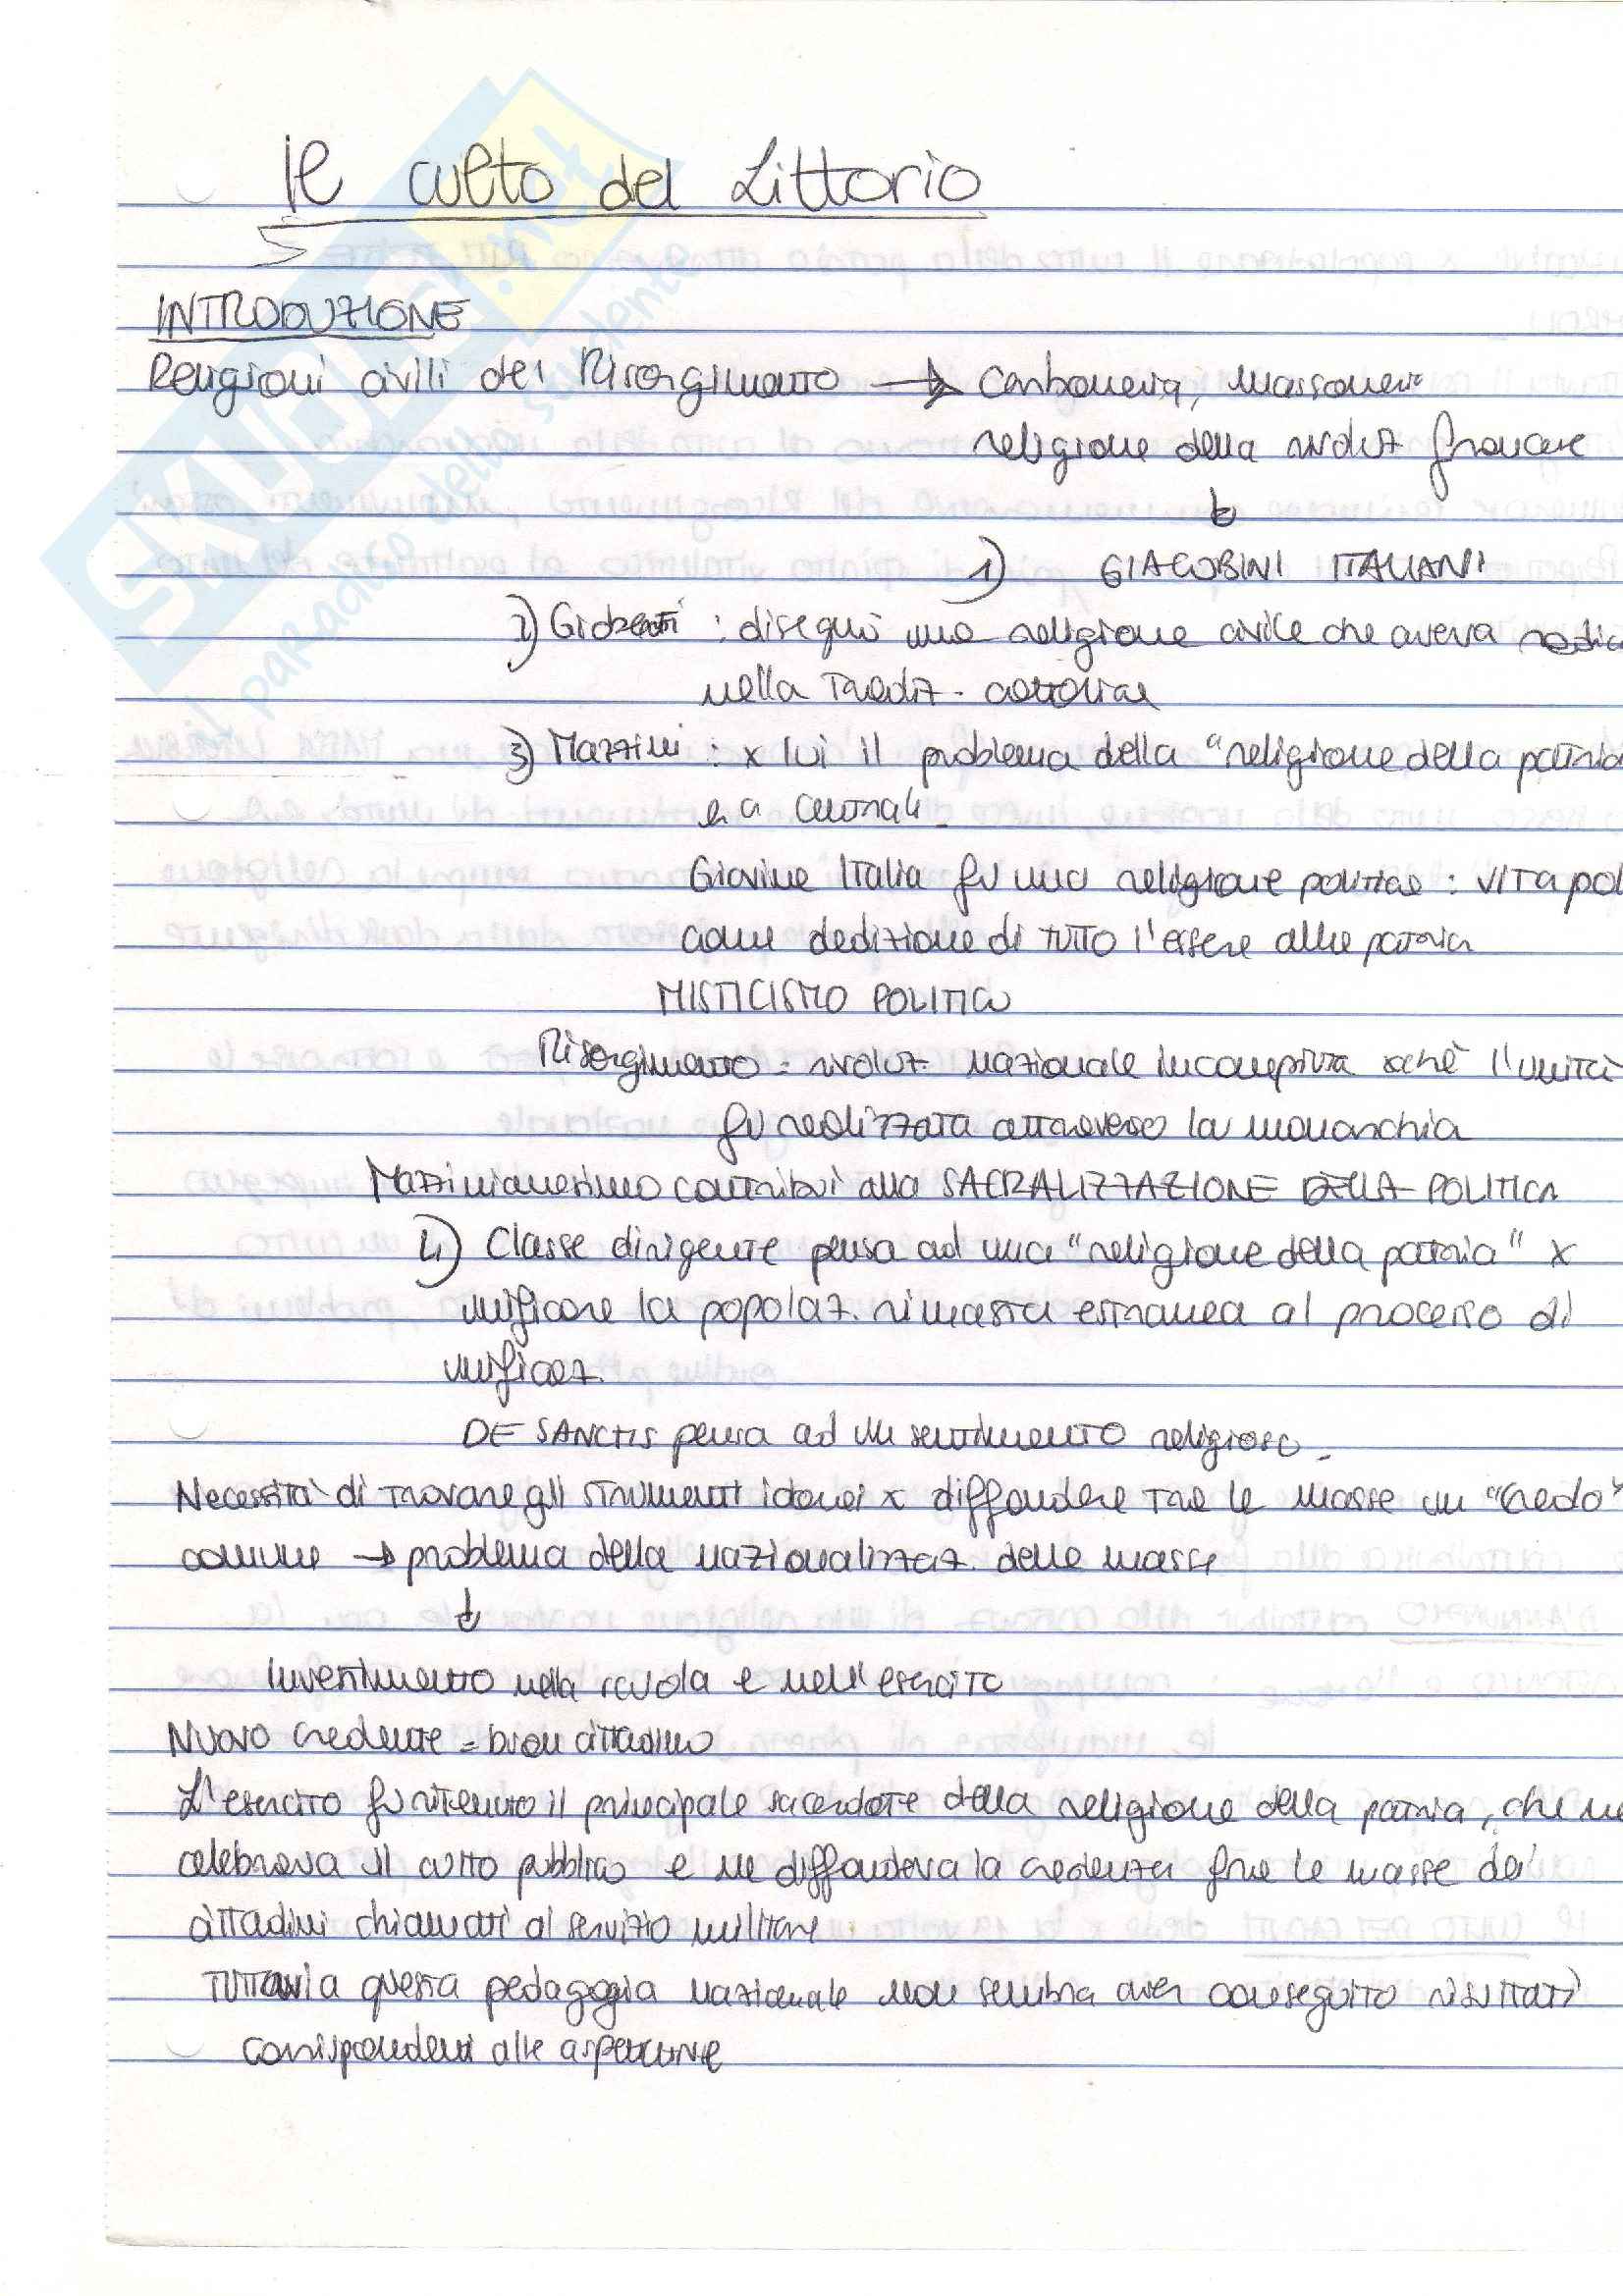 Il culto del Littorio
INTRODUZIONE
Religioni civili del Risorgimento → Carboneria, Massoneria
religione della rivoluz francese
↓
1) GIACOBINI ITALIANI
2) Gioberti : disegnò una religione civile che aveva radici
nella tradiz. cattolica
3) Mazzini : x lui il problema della "religione della patria
era centrale.
Giovine Italia fu una religione politica : VITA pol
come dedizione di TUTTO l'essere alla patria
MISTICISMO POLITICO
Risorgimento = rivoluz. nazionale incompiuta xchè l'unità
fu realizzata attraverso la monarchia
Mazzinianesimo contribuì alla SACRALIZZAZIONE DELLA POLITICA
4) Classe dirigente pensa ad una "religione della patria" x
unificare la popolaz. rimasta estranea al processo di
unificaz.
DE SANCTIS pensa ad un sentimento religioso.
Necessità di trovare gli strumenti idonei x diffondere tra le masse un "credo"
comune → problema della nazionalizzaz. delle masse
↓
Investimento nella scuola e nell'esercito
Nuovo credente = buon cittadino
L'esercito fu ritenuto il principale sacerdote della religione della patria, che ne
celebrava il culto pubblico e ne diffondeva la credenza fra le masse dei
cittadini chiamati al servizio militare
TUTTAVIA questa pedagogia nazionale non sembra aver conseguito risultati
corrispondenti alle aspettative
SKUOLA.net
il paradiso dello studente